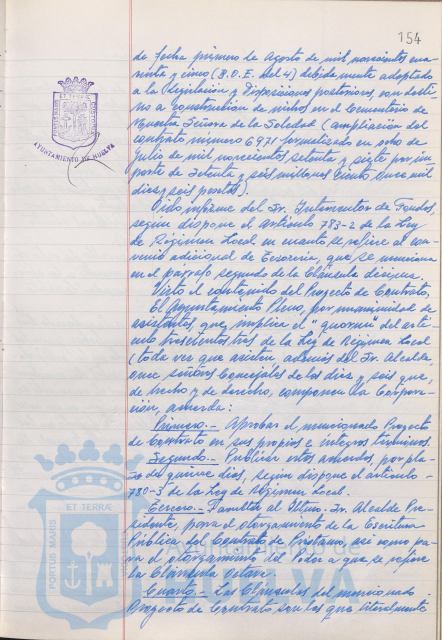 154
de fecha primero de Agosto de mil novecientos cua-
renta y cinco (B.O.E. del 4) debidamente adaptado
a la legislación y Disposiciones posteriores, con desti-
no a construcción de nichos en el Cementerio de
Nuestra Señora de la Soledad (ampliación del
contrato número 6971 formalizado en ocho de
Julio de mil novecientos setenta y siete por im-
porte de setenta y seis millones ciento once mil
diez y seis pesetas).
Oído informe del Sr. Interventor de Fondos,
según dispone el artículo 783-2 de la Ley
de Régimen Local en cuanto se refiere al con-
venio adicional de Tesorería, que se menciona
en el párrafo segundo de la Cláusula décima.
Visto el contenido del Proyecto de Contrato,
El Ayuntamiento Pleno, por unanimidad de
asistentes, que implica el "quorum" del artí-
culo trescientos tres de la Ley de Régimen Local
(toda vez que asisten además del Sr. Alcalde,
once señores Concejales de los diez y seis que,
de hecho y de derecho, componen la Corpora-
ción, acuerda:
Primero.- Aprobar el mencionado Proyecto
de Contrato en sus propios e íntegros términos.
Segundo.- Publicar estos acuerdos, por pla-
zo de quince días, según dispone el artículo -
780-3 de la Ley de Régimen Local.
Tercero.- Facultar al Iltmo. Sr. Alcalde Pre-
sidente, para el otorgamiento de la Escritura
Pública del Contrato de Préstamo, así como pa-
ra el otorgamiento del Poder a que se refiere
la Cláusula Octava.
Cuarto.- Las Cláusulas del mencionado
Proyecto de Contrato son las que literalmente
AYUNTAMIENTO DE HUELVA
PORTUS MARIS
ET TERRAE
Ayuntamiento de
HUELVA